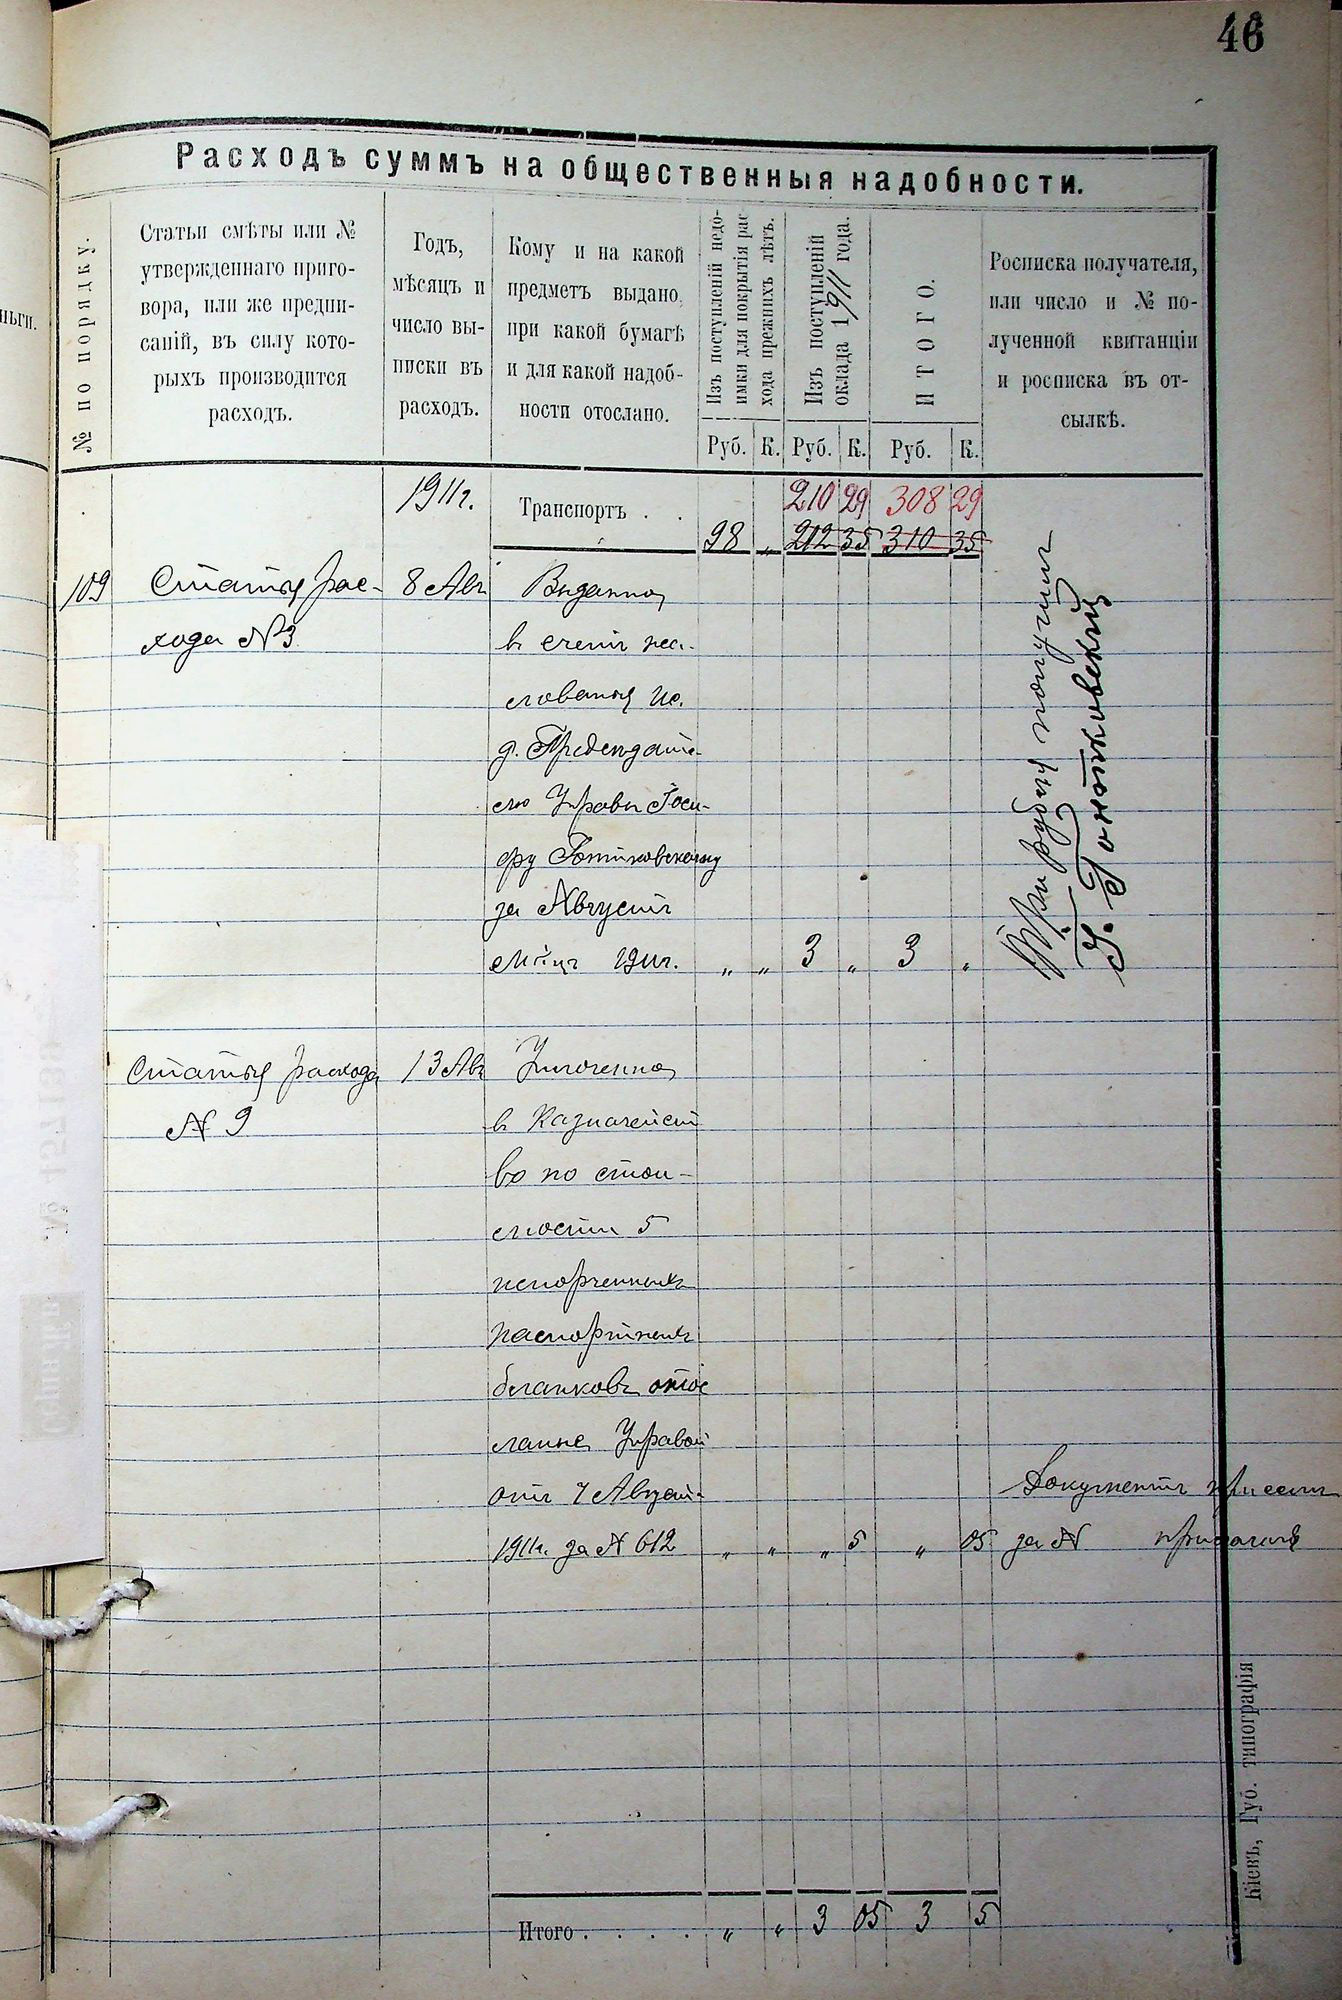 46
Расходъ суммъ на общественныя надобности.
№ по порядку.
Статьи смѣты или №
утвержденнаго приго-
вора, или же предпи-
саній, въ силу кото-
рыхъ производится
расходъ.
Годъ,
мѣсяцъ и
число вы-
писки въ
расходъ.
Кому и на какой
предметъ выдано,
при какой бумагѣ
и для какой надоб-
ности отослано.
Изъ поступленій недо-
имки для покрытія рас
хода прежнихъ лѣтъ.
Изъ поступленій
оклада 1911 года.
ИТОГО.
Росписка получателя,
или число и № по-
лученной квитанціи
и росписка въ от-
сылкѣ.
Руб. К. Руб. К. Руб. К.
1911г. Транспортъ . . 210 29 308 29
98 „ 212 35 310 35
109 Статья рас- 8 Авг Выданно
хода №3 в счетъ жа-
лованья Ис.
д. Председате-
лю Управы
за Августъ
м-цъ 1911г. „ „ 3 „ 3 „
Три рубля получилъ
Статья расхода 13 Авг Уплоченно
№ 9 в Казначейст
во по стои-
мости 5
испорченныхъ
паспортныхъ
бланковъ отос
ланые Управой
отъ 7 Август.
1911г. за № 612 „ „ „ 5 „ 05
Документъ при семъ
за №
Итого . . . . „ „ 3 05 3 5
Кіевъ, Губ. типографія